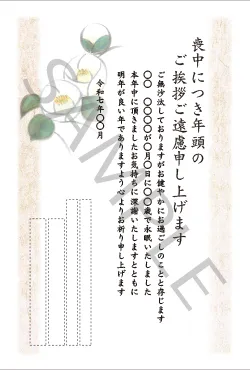 喪中につき年頭の
ご挨拶ご遠慮申し上げます
ご無沙汰しておりますがお健やかにお過ごしのことと存じます
〇〇 〇〇〇〇が〇月〇日に〇〇歳で永眠いたしました
本年中に頂きましたお気持ちに深謝いたしますとともに
明年が良い年でありますよう心よりお祈り申し上げます
令和七年〇〇月
SAMPLE